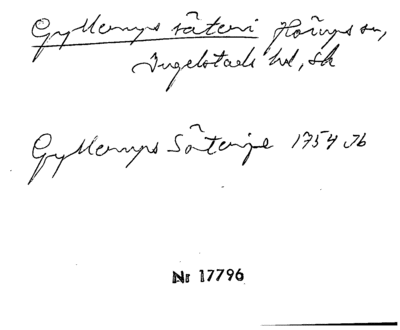 Gyllerups säteri Horups sn,
Ingelstads hd, Sk
Gyllerups Säterije 1754 Jb
Nr 17796